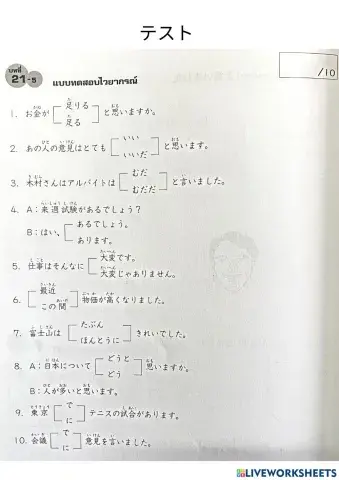 テスト
บทที่
21-5
แบบทดสอบไวยากรณ์
/10
1. お金が [足りる / 足る] と思いますか。
2. あの人の意見はとても [いい / いいだ] と思います。
3. 木村さんはアルバイトは [むだ / むだだ] と言いました。
4. A：来週試験があるでしょう？
B：はい、[あるでしょう。 / あります。]
5. 仕事はそんなに [大変です。 / 大変じゃありません。]
6. [最近 / この間] 物価が高くなりました。
7. 富士山は [たぶん / ほんとうに] きれいでした。
8. A：日本について [どうと / どう] 思いますか。
B：人が多いと思います。
9. 東京 [で / に] テニスの試合があります。
10. 会議 [で / に] 意見を言いました。
LIVEWORKSHEETS